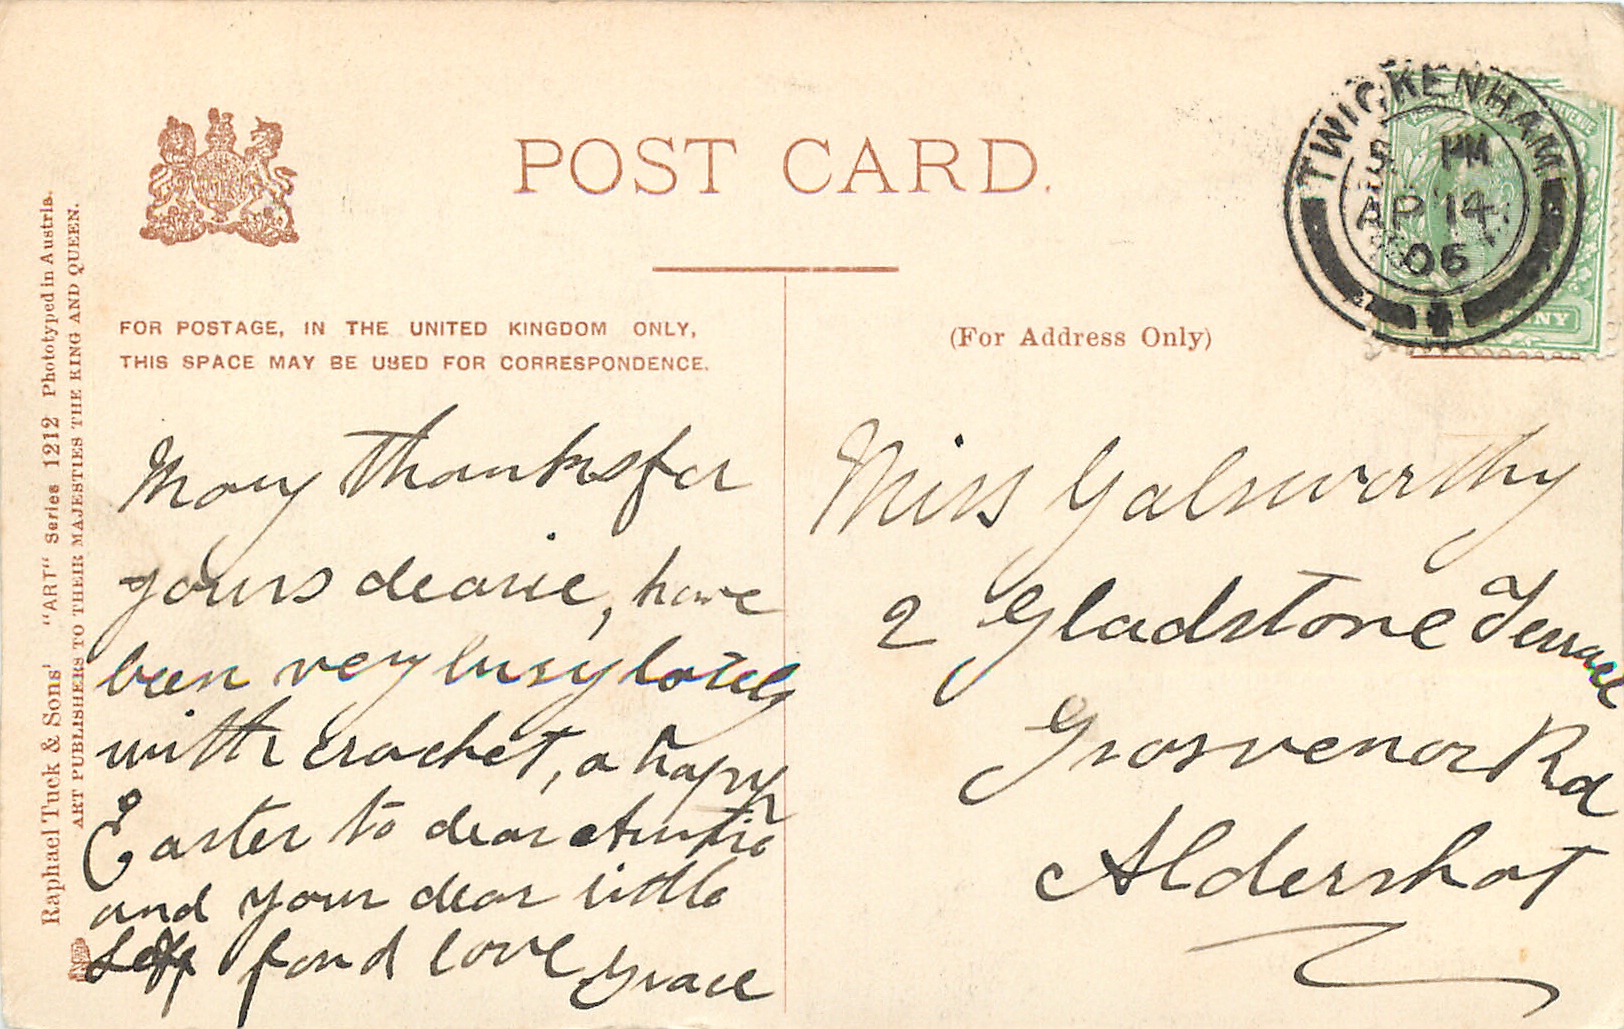 POST CARD.
FOR POSTAGE, IN THE UNITED KINGDOM ONLY,
THIS SPACE MAY BE USED FOR CORRESPONDENCE.
(For Address Only)
TWICKENHAM
5 PM
AP 14
06
Raphael Tuck & Sons' "ART" Series 1212 Phototyped in Austria.
ART PUBLISHERS TO THEIR MAJESTIES THE KING AND QUEEN.
Many thanks for
yours dearie, have
been very busy lately
with crochet, a happy
Easter to dear Auntie
and your dear little
self fond love Grace
Miss Galsworthy
2 Gladstone Terrace
Grosvenor Rd
Aldershot